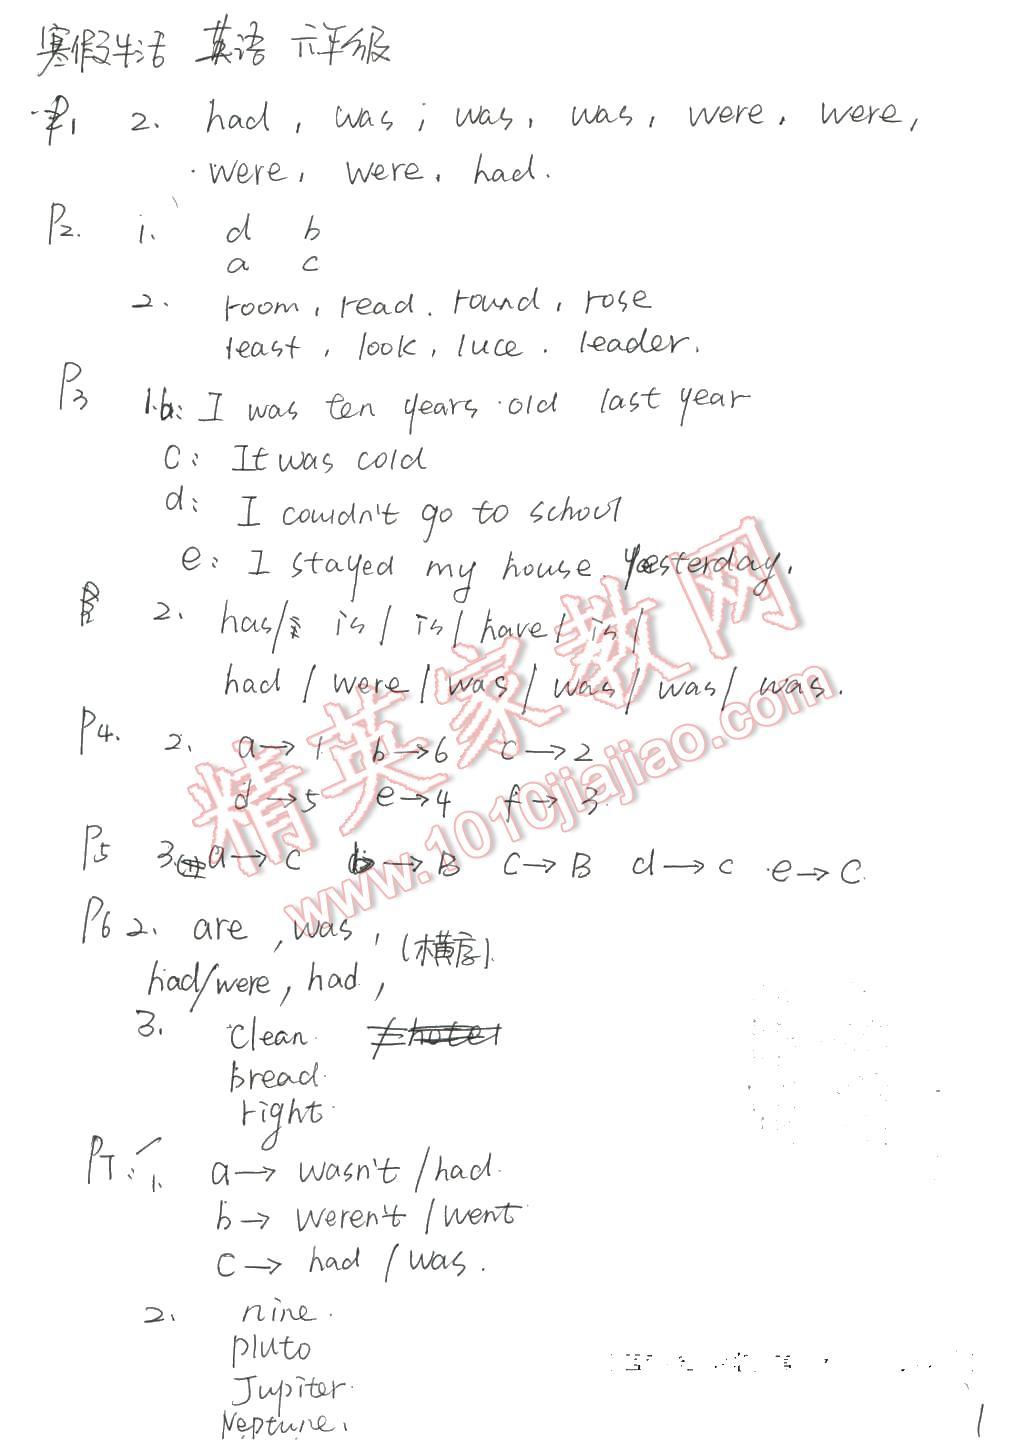 寒假生活 英语 六年级
P1 2. had, was; was, was, were, were,
were, were, had.
P2. 1. d b
a c
2. room, read. round, rose
least, look, luce. leader.
P3 1.b: I was ten years old last year
c: It was cold
d: I couldn't go to school
e: I stayed my house yesterday.
2. has/ is/ is/ have/ is/
had / were / was / was / was / was.
P4. 2. a→1 b→6 c→2
d→5 e→4 f→3
P5 3. a→C b→B C→B d→c e→C
P6 2. are, was, (横序)
had/were, had,
3. clean
bread
right
P7. 1. a→ wasn't / had
b→ weren't / went
c→ had / was.
2. nine
pluto
Jupiter
Neptune.
1
精英家教网
www.1010jiajiao.com